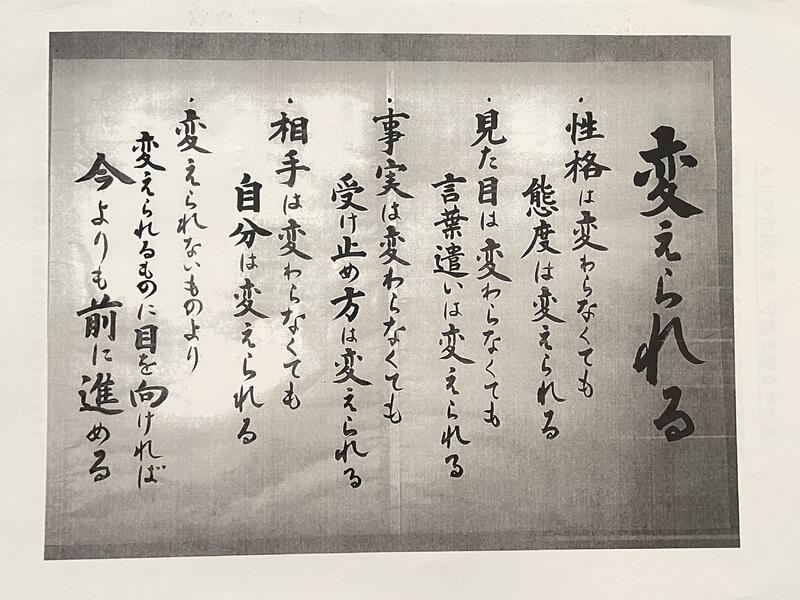 変えられる
・性格は変わらなくても
態度は変えられる
・見た目は変わらなくても
言葉遣いは変えられる
・事実は変わらなくても
受け止め方は変えられる
・相手は変わらなくても
自分は変えられる
・変えられないものより
変えられるものに目を向ければ
今よりも前に進める